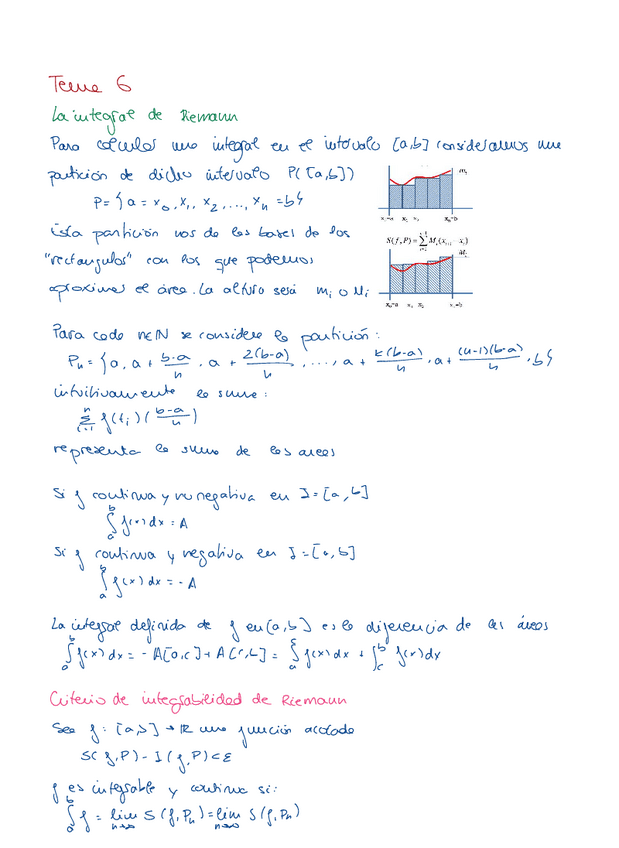 Tema 6
La integral de Riemann
Para calcular una integral en el intervalo [a,b] consideramos una
partición de dicho intervalo P([a,b])
m_i
P = { a = x_0, x_1, x_2, ..., x_n = b }
x_0=a x_2 x_3 x_n=b
Esta partición nos da las bases de los
S(f,P) = ∑ M_i(x_{i+1} x_i)
"rectangulos" con los que podemos
M_i
aproximar el área. La altura será m_i o M_i
x_0=a x_1 x_2 x_n=b
Para cada n∈N se considera la partición:
P_n = { a, a + (b-a)/n, a + 2(b-a)/n, ..., a + k(b-a)/n, a + (n-1)(b-a)/n, b }
intuitivamente la suma:
∑_{i=1}^{n} f(t_i) ((b-a)/n)
representa la suma de las areas
Si f continua y no negativa en I = [a,b]
∫_a^b f(x) dx = A
Si f continua y negativa en I = [a,b]
∫_a^b f(x) dx = -A
La integral definida de f en [a,b] es la diferencia de las áreas
∫_a^b f(x) dx = - A[a,c] + A[c,b] = ∫_a^c f(x) dx + ∫_c^b f(x) dx
Criterio de integrabilidad de Riemann
Sea f: [a,b] → R una función acotada
S(f,P) - I(f,P) < ε
f es integrable y continua si:
∫_a^b f = lim_{n→∞} S(f,P_n) = lim_{n→∞} S(f,P_n)